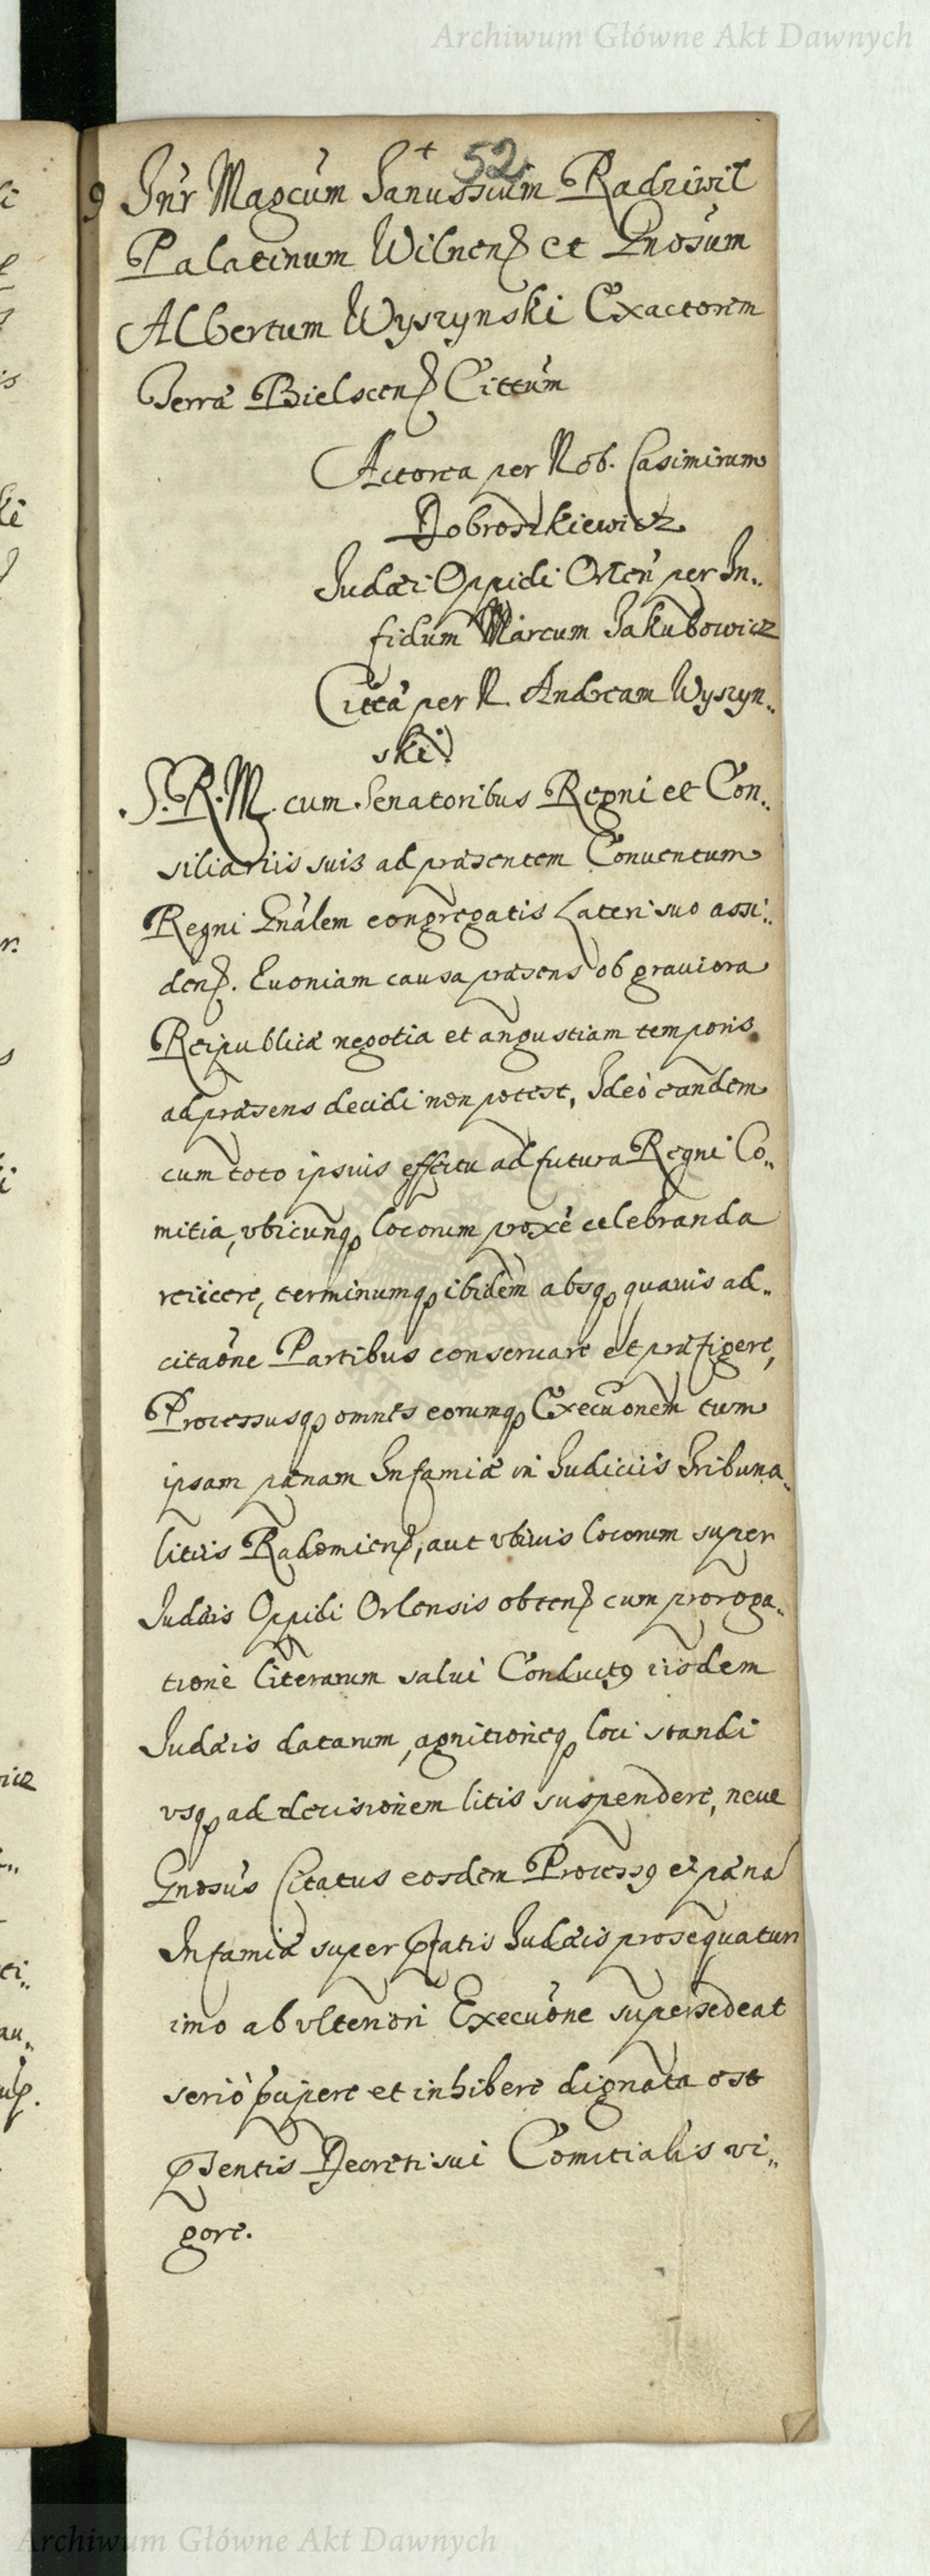 Archiwum Główne Akt Dawnych
52
Inr Magcum Janussium Radziwil
Palatinum Wilnens et Gnosum
Albertum Wyszynski Exactorem
Terræ Bielscens Cittum
Actorea per Nob. Casimirum
Dobroszkiewicz
Judæi Oppidi Orlen per In„
fidum Marcum Jakubowicz
Citta per N. Andream Wyszyn„
ski
S. R. M. cum Senatoribus Regni et Con„
siliariis suis ad præsentem Conuentum
Regni Gnalem congregatis Lateri suo assi„
dens. Quoniam causa præsens ob grauiora
Reipublicæ negotia et angustiam temporis
ad præsens decidi non potest, Ideò eandem
cum toto ipsius effectu ad futura Regni Co„
mitia, vbicunq locorum proxè celebranda
reiicere, terminumq ibidem absq quauis ad„
citaone Partibus conseruare et præfigere,
Processusq omnes eorumq Execuonem tum
ipsam pænam Infamiæ in Judiciis Tribuna„
litiis Radomiens, aut vbiuis locorum super
Judæis Oppidi Orlensis obtens cum proroga„
tione literarum salui Conductq iisdem
Judæis datarum, agnitioneq loci standi
vsq ad decisionem litis suspendere, neue
Gnosus Citatus eosdem Process9 et pæna
Infamiæ super pfatis Judæis prosequatur
imo ab vlteriori Execuone supersedeat
seriò pcipere et inhibere dignata est
psentis Decreti sui Comitialis vi„
gore.
Archiwum Główne Akt Dawnych